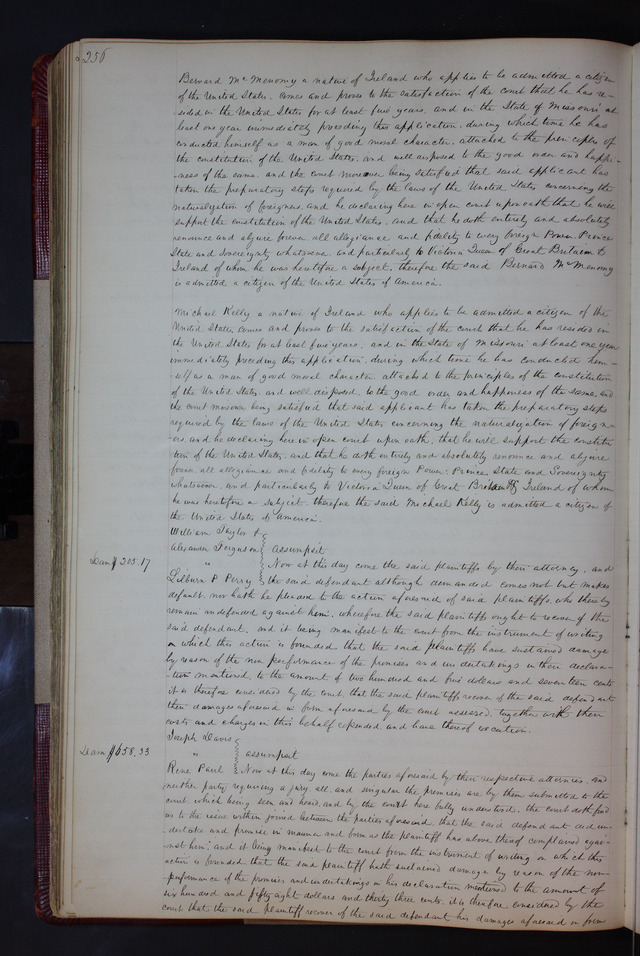 256
Bernard McMenomy a native of Ireland who applies to be admitted a citizen
of the United States, comes and proves to the satisfaction of the court that he has re-
sided in the United States for at least five years, and in the State of Missouri at
least one year immediately preceding this application, during which time he has
conducted himself as a man of good moral character, attached to the principles of
the constitution of the United States, and well disposed to the good order and happi-
ness of the same. and the court moreover being satisfied that said applicant has
taken the preparatory steps required by the laws of the United States concerning the
naturalization of foreigners, and he declaring here in open court upon oath that he will
support the constitution of the United States, and that he doth entirely and absolutely
renounce and abjure forever all allegiance and fidelity to every foreign Power, Prince
State and Sovereignty whatsoever, and particularly to Victoria Queen of Great Britain &
Ireland of whom he was heretofore a subject, therefore the said Bernard McMenomy
is admitted a citizen of the United States of America.
Michael Kelly a native of Ireland who applies to be admitted a citizen of the
United States, comes and proves to the satisfaction of the court that he has resided in
the United States for at least five years, and in the State of Missouri at least one year
immediately preceding this application, during which time he has conducted him-
self as a man of good moral character, attached to the principles of the constitution
of the United States, and well disposed to the good order and happiness of the same, and
the court moreover being satisfied that said applicant has taken the preparatory steps
required by the laws of the United States concerning the naturalization of foreign-
ers, and he declaring here in open court upon oath, that he will support the constitu-
tion of the United States, and that he doth entirely and absolutely renounce and abjure
forever all allegiance and fidelity to every foreign Power, Prince State and Sovereignty
whatsoever, and particularly to Victoria Queen of Great Britain & Ireland of whom
he was heretofore a subject, therefore the said Michael Kelly is admitted a citizen of
the United States of America.
William Taylor &
Alexander Ferguson } assumpsit
Dam $205.17
" } Now at this day come the said plaintiffs by their attorney, and
Lilburn P Perry } the said defendant although demanded comes not but makes
default, nor hath he pleaded to the action aforesaid of said plaintiffs, who thereby
remain undefended against him, wherefore the said plaintiffs ought to recover of the
said defendant, and it being manifest to the court from the instrument of writing
on which this action is founded that the said plaintiffs have sustained damage
by reason of the non performance of the promises and undertakings in their declara-
-tion mentioned, to the amount of two hundred and five dollars and seventeen cents
it is therefore considered by the court, that the said plaintiffs recover of the said defendant
their damages aforesaid in form aforesaid by the court assessed, together with their
costs and charges in this behalf expended, and have thereof execution.
Joseph Davis }
Dam $658.33
" } assumpsit
Rene Paul } Now at this day come the parties aforesaid by their respective attornies, and
neither party requiring a jury all and singular the premises are by them submitted to the
court, which being seen and heard, and by the court here fully understood, the court doth find
as to the issue within joined between the parties aforesaid, that the said defendant did un-
-dertake and promise in manner and form as the plaintiff has above thereof complained agai-
-nst him; and it being manifest to the court from the instrument of writing on which this
action is founded that the said plaintiff hath sustained damage by reason of the non-
-performance of the promises and undertakings in his declaration mentioned to the amount of
six hundred and fifty eight dollars and thirty three cents. it is therefore considered by the
court that the said plaintiff recover of the said defendant his damages aforesaid in form